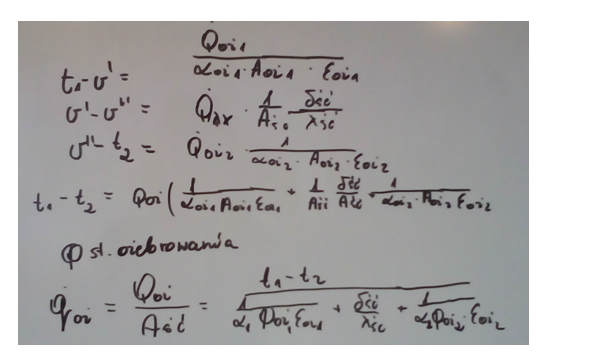 t₁-υ' = Q̇oi₁ / (αoi₁ · Aoi₁ · εoi₁)
υ'-υ'' = · 1/A · δść/λść
υ''-t₂ = Q̇oi₂ · 1/(αoi₂ · Aoi₂ · εoi₂)
t₁-t₂ = Qoi ( 1/(αoi₁ Aoi₁ εoi₁) + 1/ δść/ + 1/(αoi₂ · Aoi₂ εoi₂)
φ st. ożebrowania
q̇oi = Q̇oi/Aść = (t₁-t₂) / ( 1/(α₁ φoi₁ εoi₁) + δść/λść + 1/(α₂ φoi₂ εoi₂) )